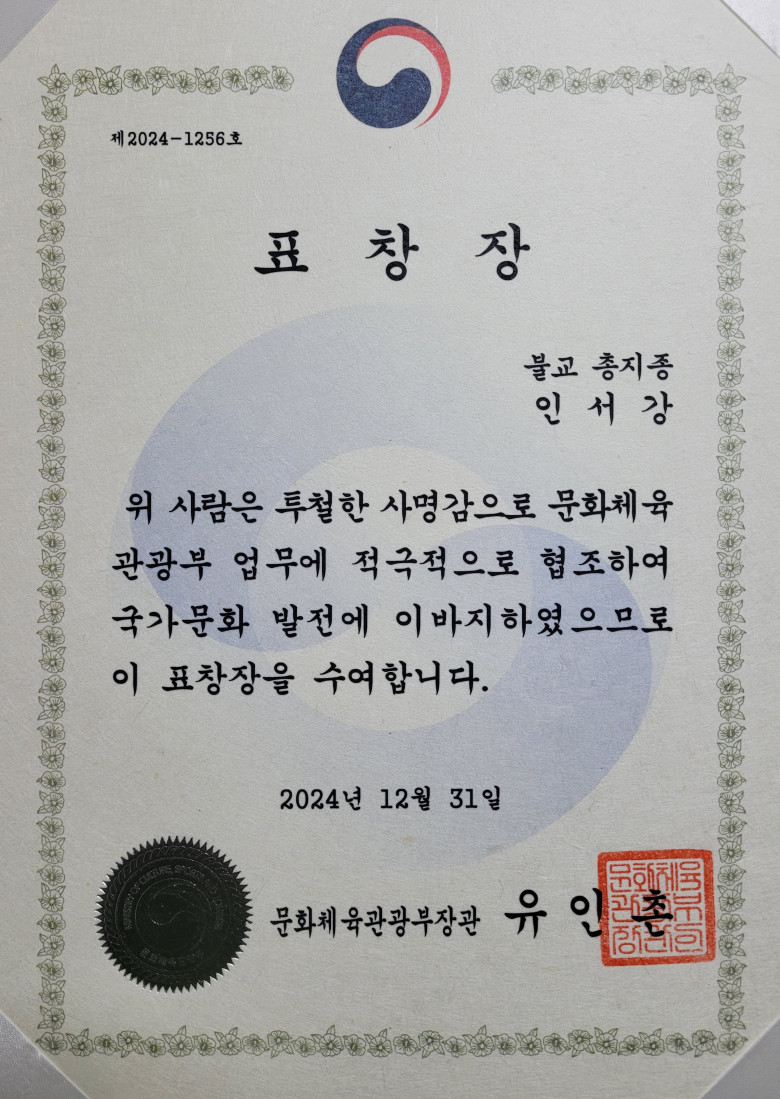 제2024-1256호
표 창 장
불교 총지종
인 서 강
위 사람은 투철한 사명감으로 문화체육
관광부 업무에 적극적으로 협조하여
국가문화 발전에 이바지하였으므로
이 표창장을 수여합니다.
2024년 12월 31일
문화체육관광부장관 유 인 촌